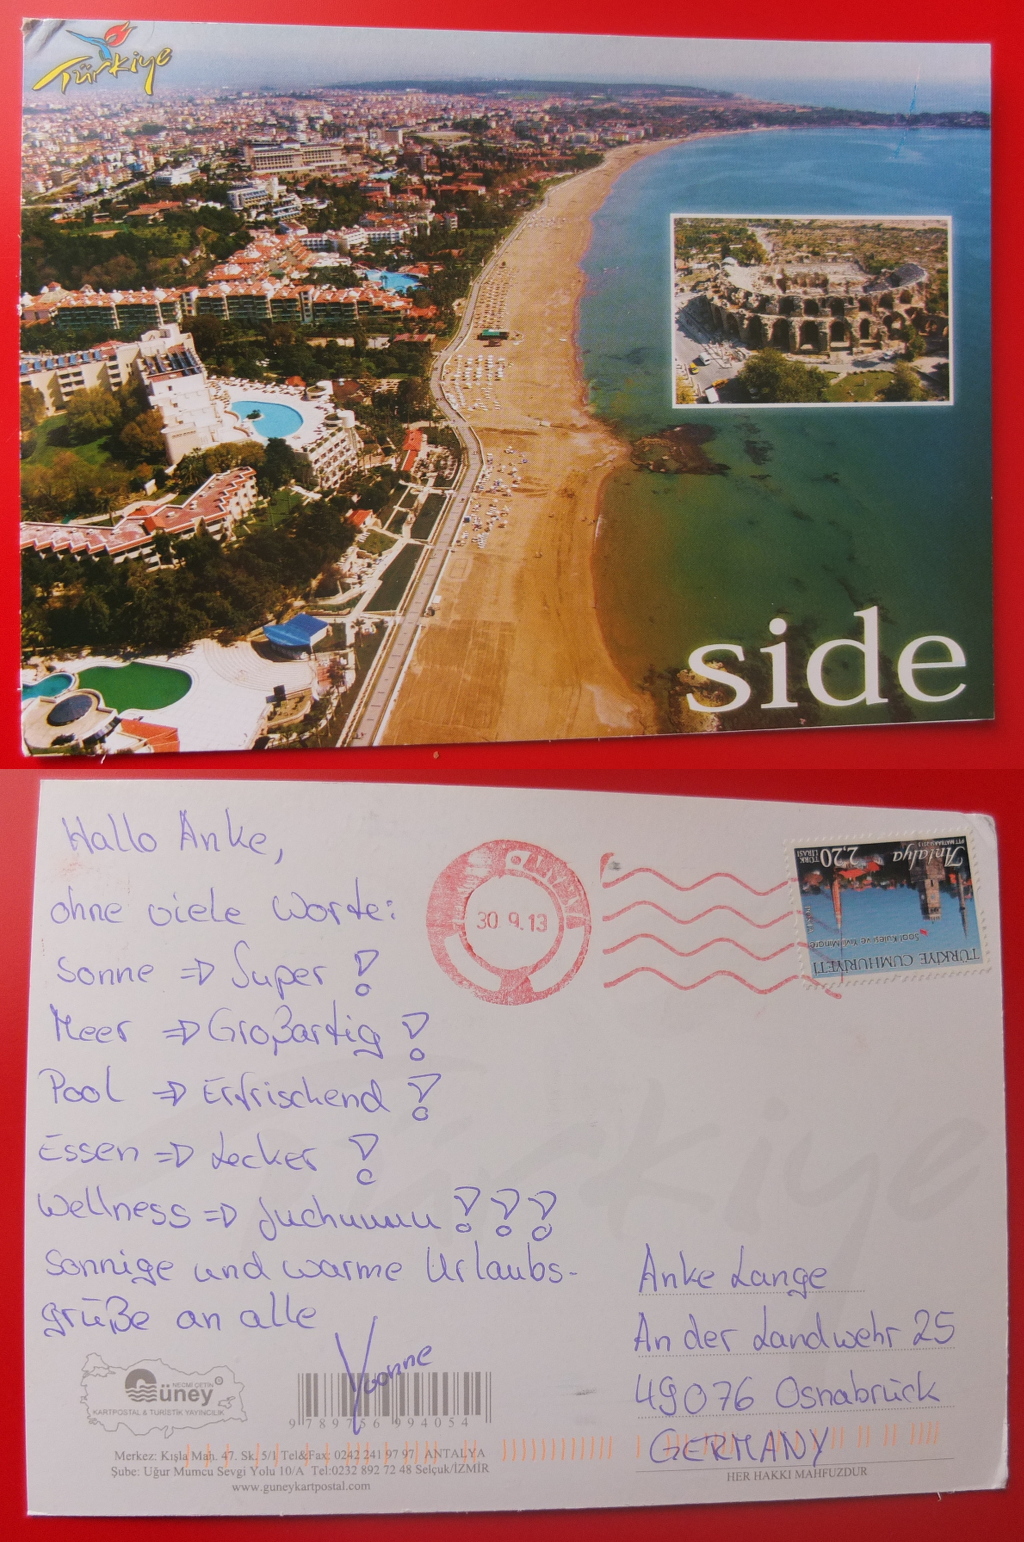 Türkiye
side
Hallo Anke,
ohne viele Worte:
Sonne => Super !
Meer => Großartig !
Pool => Erfrischend !
Essen => Lecker !
Wellness => Juchuuuu !!!
Sonnige und warme Urlaubs-
grüße an alle
Yvonne
30 9.13
Antalya
2,20 TÜRK LİRASI
Saat Kulesi ve Yivli Minare
TÜRKİYE CUMHURİYETİ
Türkiye
Anke Lange
An der Landwehr 25
49076 Osnabrück
GERMANY
NECMİ ÇETİN
Güney
KARTPOSTAL & TURİSTİK YAYINCILIK
9 789756 994054
Merkez: Kışla Mah. 47. Sk. 5/1 Tel&Fax: 0242 241 97 97 ANTALYA
Şube: Uğur Mumcu Sevgi Yolu 10/A Tel:0232 892 72 48 Selçuk/İZMİR
www.guneykartpostal.com
HER HAKKI MAHFUZDUR